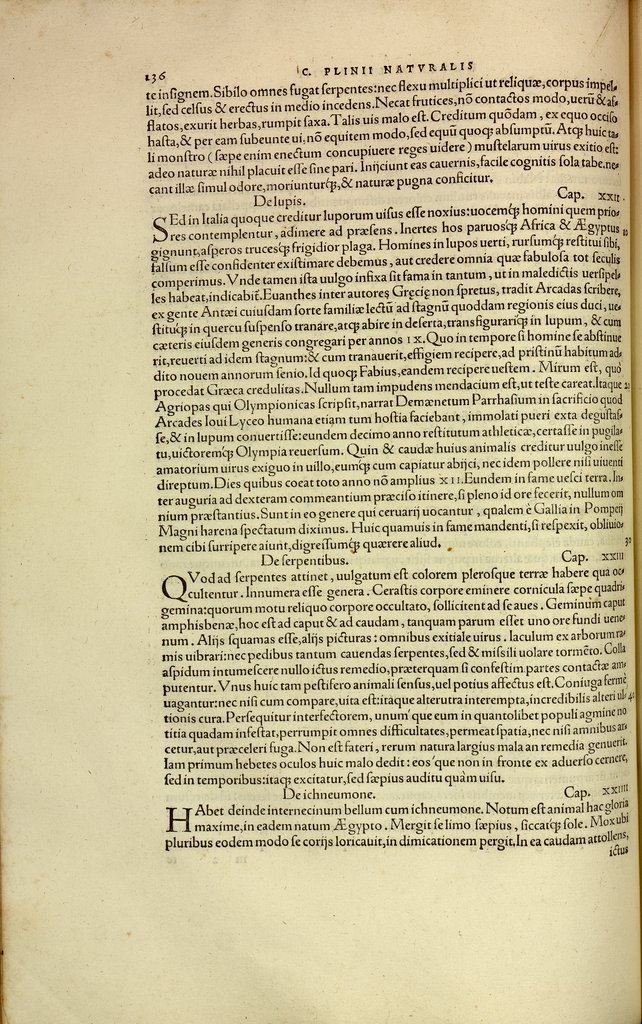 136 C. PLINII NATVRALIS
te insignem. Sibilo omnes fugat serpentes: nec flexu multiplici ut reliquæ, corpus impel=
lit, sed celsus & erectus in medio incedens. Necat frutices, nõ contactos modo, uerũ & af=
flatos, exurit herbas, rumpit saxa. Talis uis malo est. Creditum quõdam, ex equo occiso
hasta, & per eam subeunte ui, nõ equitem modo, sed equũ quoqꝫ absumptũ. Atqꝫ huic ta=
li monstro (sæpe enim enectum concupiuere reges uidere) mustelarum uirus exitio est:
adeo naturæ nihil placuit esse sine pari. Inijciunt eas cauernis, facile cognitis sola tabe. ne=
cant illæ simul odore, moriunturqꝫ, & naturæ pugna conficitur.
De lupis. Cap. XXII.
SEd in Italia quoque creditur luporum uisus esse noxius: uocemqꝫ homini quem prio=
res contemplentur, adimere ad præsens. Inertes hos paruosqꝫ Africa & Ægyptus 10
gignunt, asperos trucesqꝫ frigidior plaga. Homines in lupos uerti, rursumqꝫ restitui sibi,
falsum esse confidenter existimare debemus, aut credere omnia quæ fabulosa tot seculis
comperimus. Vnde tamen ista uulgo infixa sit fama in tantum, ut in maledictis uersipel=
les habeat, indicabit. Euanthes inter autores Gręcię non spretus, tradit Arcadas scribere,
ex gente Antæi cuiusdam sorte familiæ lectũ ad stagnũ quoddam regionis eius duci, ue=
stituqꝫ in quercu suspenso tranare, atqꝫ abire in deserta, transfigurariqꝫ in lupum, & cum
cæteris eiusdem generis congregari per annos IX. Quo in tempore si homine se abstinue
rit, reuerti ad idem stagnum: & cum tranauerit, effigiem recipere, ad pristinũ habitum ad=
dito nouem annorum senio. Id quoqꝫ Fabius, eandem recipere uestem. Mirum est, quo
procedat Græca credulitas. Nullum tam impudens mendacium est, ut teste careat. Itaque 20
Agriopas qui Olympionicas scripsit, narrat Demænetum Parrhasium in sacrificio quod
Arcades Ioui Lyceo humana etiam tum hostia faciebant, immolati pueri exta degustas=
se, & in lupum conuertisse: eundem decimo anno restitutum athleticæ, certasse in pugila=
tu, uictoremqꝫ Olympia reuersum. Quin & caudæ huius animalis creditur uulgo inesse
amatorium uirus exiguo in uillo, eumqꝫ cum capiatur abijci, nec idem pollere nisi uiuenti
direptum. Dies quibus coeat toto anno nõ amplius XII. Eundem in fame uesci terra. In=
ter auguria ad dexteram commeantium præciso itinere, si pleno id ore fecerit, nullum om
nium præstantius. Sunt in eo genere qui ceruarij uocantur, qualem è Gallia in Pompeij
Magni harena spectatum diximus. Huic quamuis in fame mandenti, si respexit, obliuio=
nem cibi surripere aiunt, digressumqꝫ quærere aliud. 30
De serpentibus. Cap. XXIII
QVod ad serpentes attinet, uulgatum est colorem plerosque terræ habere qua oc=
cultentur. Innumera esse genera. Cerastis corpore eminere cornicula sæpe quadri=
gemina: quorum motu reliquo corpore occultato, sollicitent ad se aues. Geminum caput
amphisbenæ, hoc est ad caput & ad caudam, tanquam parum esset uno ore fundi uene=
num. Alijs squamas esse, alijs picturas: omnibus exitiale uirus. Iaculum ex arborum ra=
mis uibrari: nec pedibus tantum cauendas serpentes, sed & missili uolare tormẽto. Colla
aspidum intumescere nullo ictus remedio, præterquam si confestim partes contactæ am=
putentur. Vnus huic tam pestifero animali sensus, uel potius affectus est. Coniuga ferme
uagantur: nec nisi cum compare, uita est: itaque alterutra interempta, incredibilis alteri ul= 40
tionis cura. Persequitur interfectorem, unum'que eum in quantolibet populi agmine no
titia quadam infestat, perrumpit omnes difficultates, permeat spatia, nec nisi amnibus ar=
cetur, aut præceleri fuga. Non est fateri, rerum natura largius mala an remedia genuerit.
Iam primum hebetes oculos huic malo dedit: eos'que non in fronte ex aduerso cernere,
sed in temporibus: itaqꝫ excitatur, sed sæpius auditu quàm uisu.
De ichneumone. Cap. XXIIII
HAbet deinde internecinum bellum cum ichneumone. Notum est animal hac gloria
maxime, in eadem natum Ægypto. Mergit se limo sæpius, siccatqꝫ sole. Mox ubi
pluribus eodem modo se corijs loricauit, in dimicationem pergit, In ea caudam attollens,
ictus